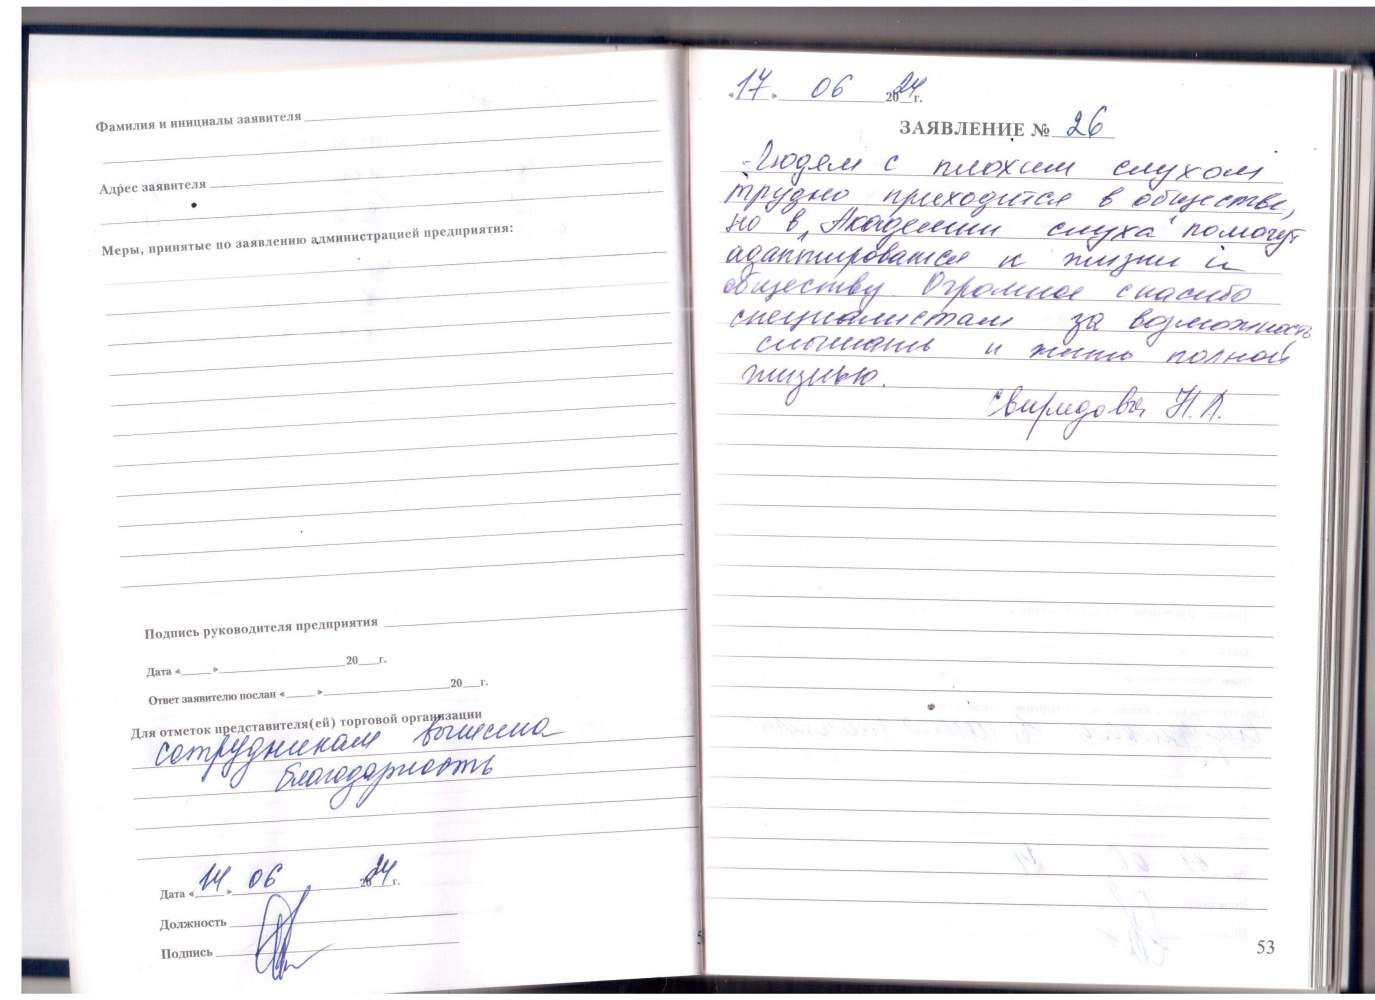 Фамилия и инициалы заявителя
Адрес заявителя
Меры, принятые по заявлению администрацией предприятия:
Подпись руководителя предприятия
Дата « » 20 г.
Ответ заявителю послан « » 20 г.
Для отметок представителя(ей) торговой организации
сотрудникам вынесена
благодарность
Дата «14» 06 2024 г.
Должность
Подпись
«17» 06 2024 г.
ЗАЯВЛЕНИЕ № 26
Людям с плохим слухом
трудно приходится в обществе,
но в „Академии слуха" помогут
адаптироваться к жизни и
обществу. Огромное спасибо
специалистам за возможность
слышать и жить полной
жизнью.
Свиридова Н.А.
53